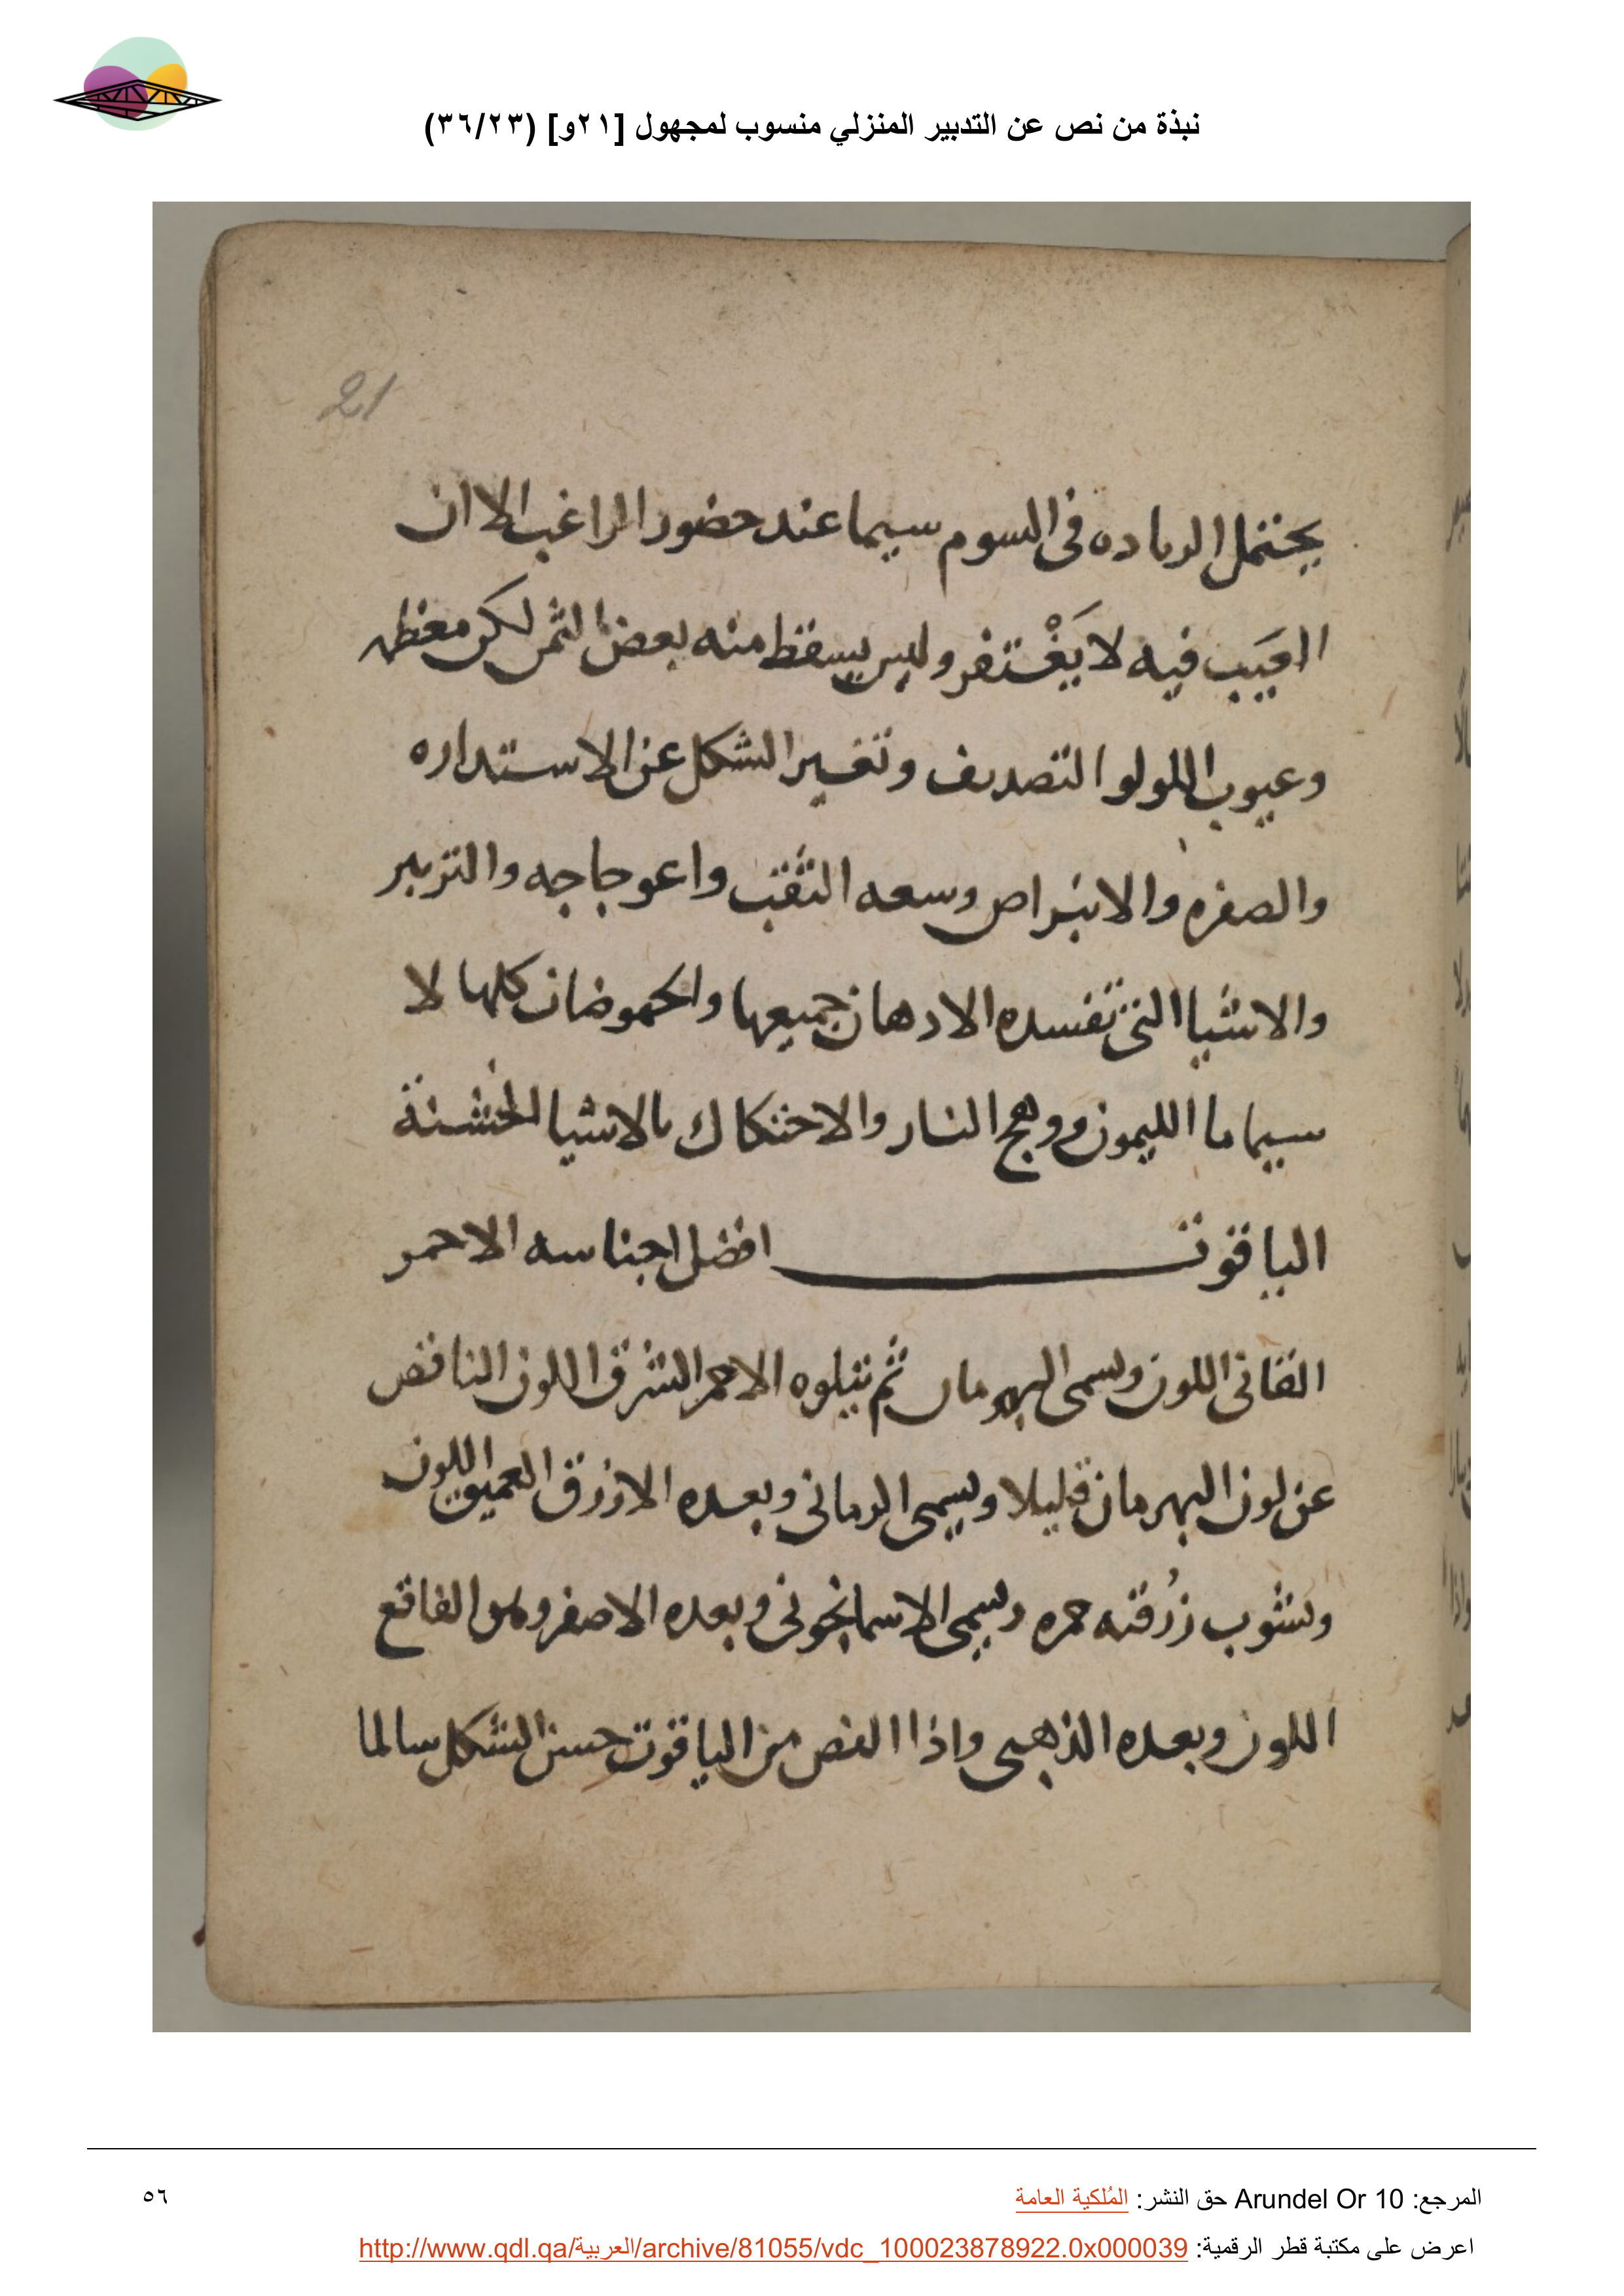 نبذة من نص عن التدبير المنزلي منسوب لمجهول [٢١و] (٣٦/٢٣)
21
يحتمل الرياده فى السوم سيما عند حضور الراغب الا ان
العيب فيه لا يَغْتفر وليس يسقط منه بعض الثمن لكن معظمه
وعيوب اللولو التصديف وتغيير الشكل عن الاستداره
والصفره والانبراص وسعه الثقب واعوجاجه والتزبير
والاشيا التى تفسده الادهان جميعها والحموضات كلها لا
سيما ما الليمون ووهج النار والاحتكاك بالاشيا الخشنة
الياقوت افضل اجناسه الاحمر
القانى اللون ويسمى البهرمان ثم يتلوه الاحمر المشرق اللون الناقص
عن لون البهرمان قليلا ويسمى الرمانى وبعده الازرق العميق اللون
وتشوب زُرقته حمره ويسمى الاسمانجونى وبعده الاصفر وهو الفاقع
اللون وبعده الذهبى واذا الفص من الياقوت حسن الشكل سالما
المرجع: Arundel Or 10 حق النشر: المُلكية العامة
٥٦
اعرض على مكتبة قطر الرقمية: http://www.qdl.qa/العربية/archive/81055/vdc_100023878922.0x000039